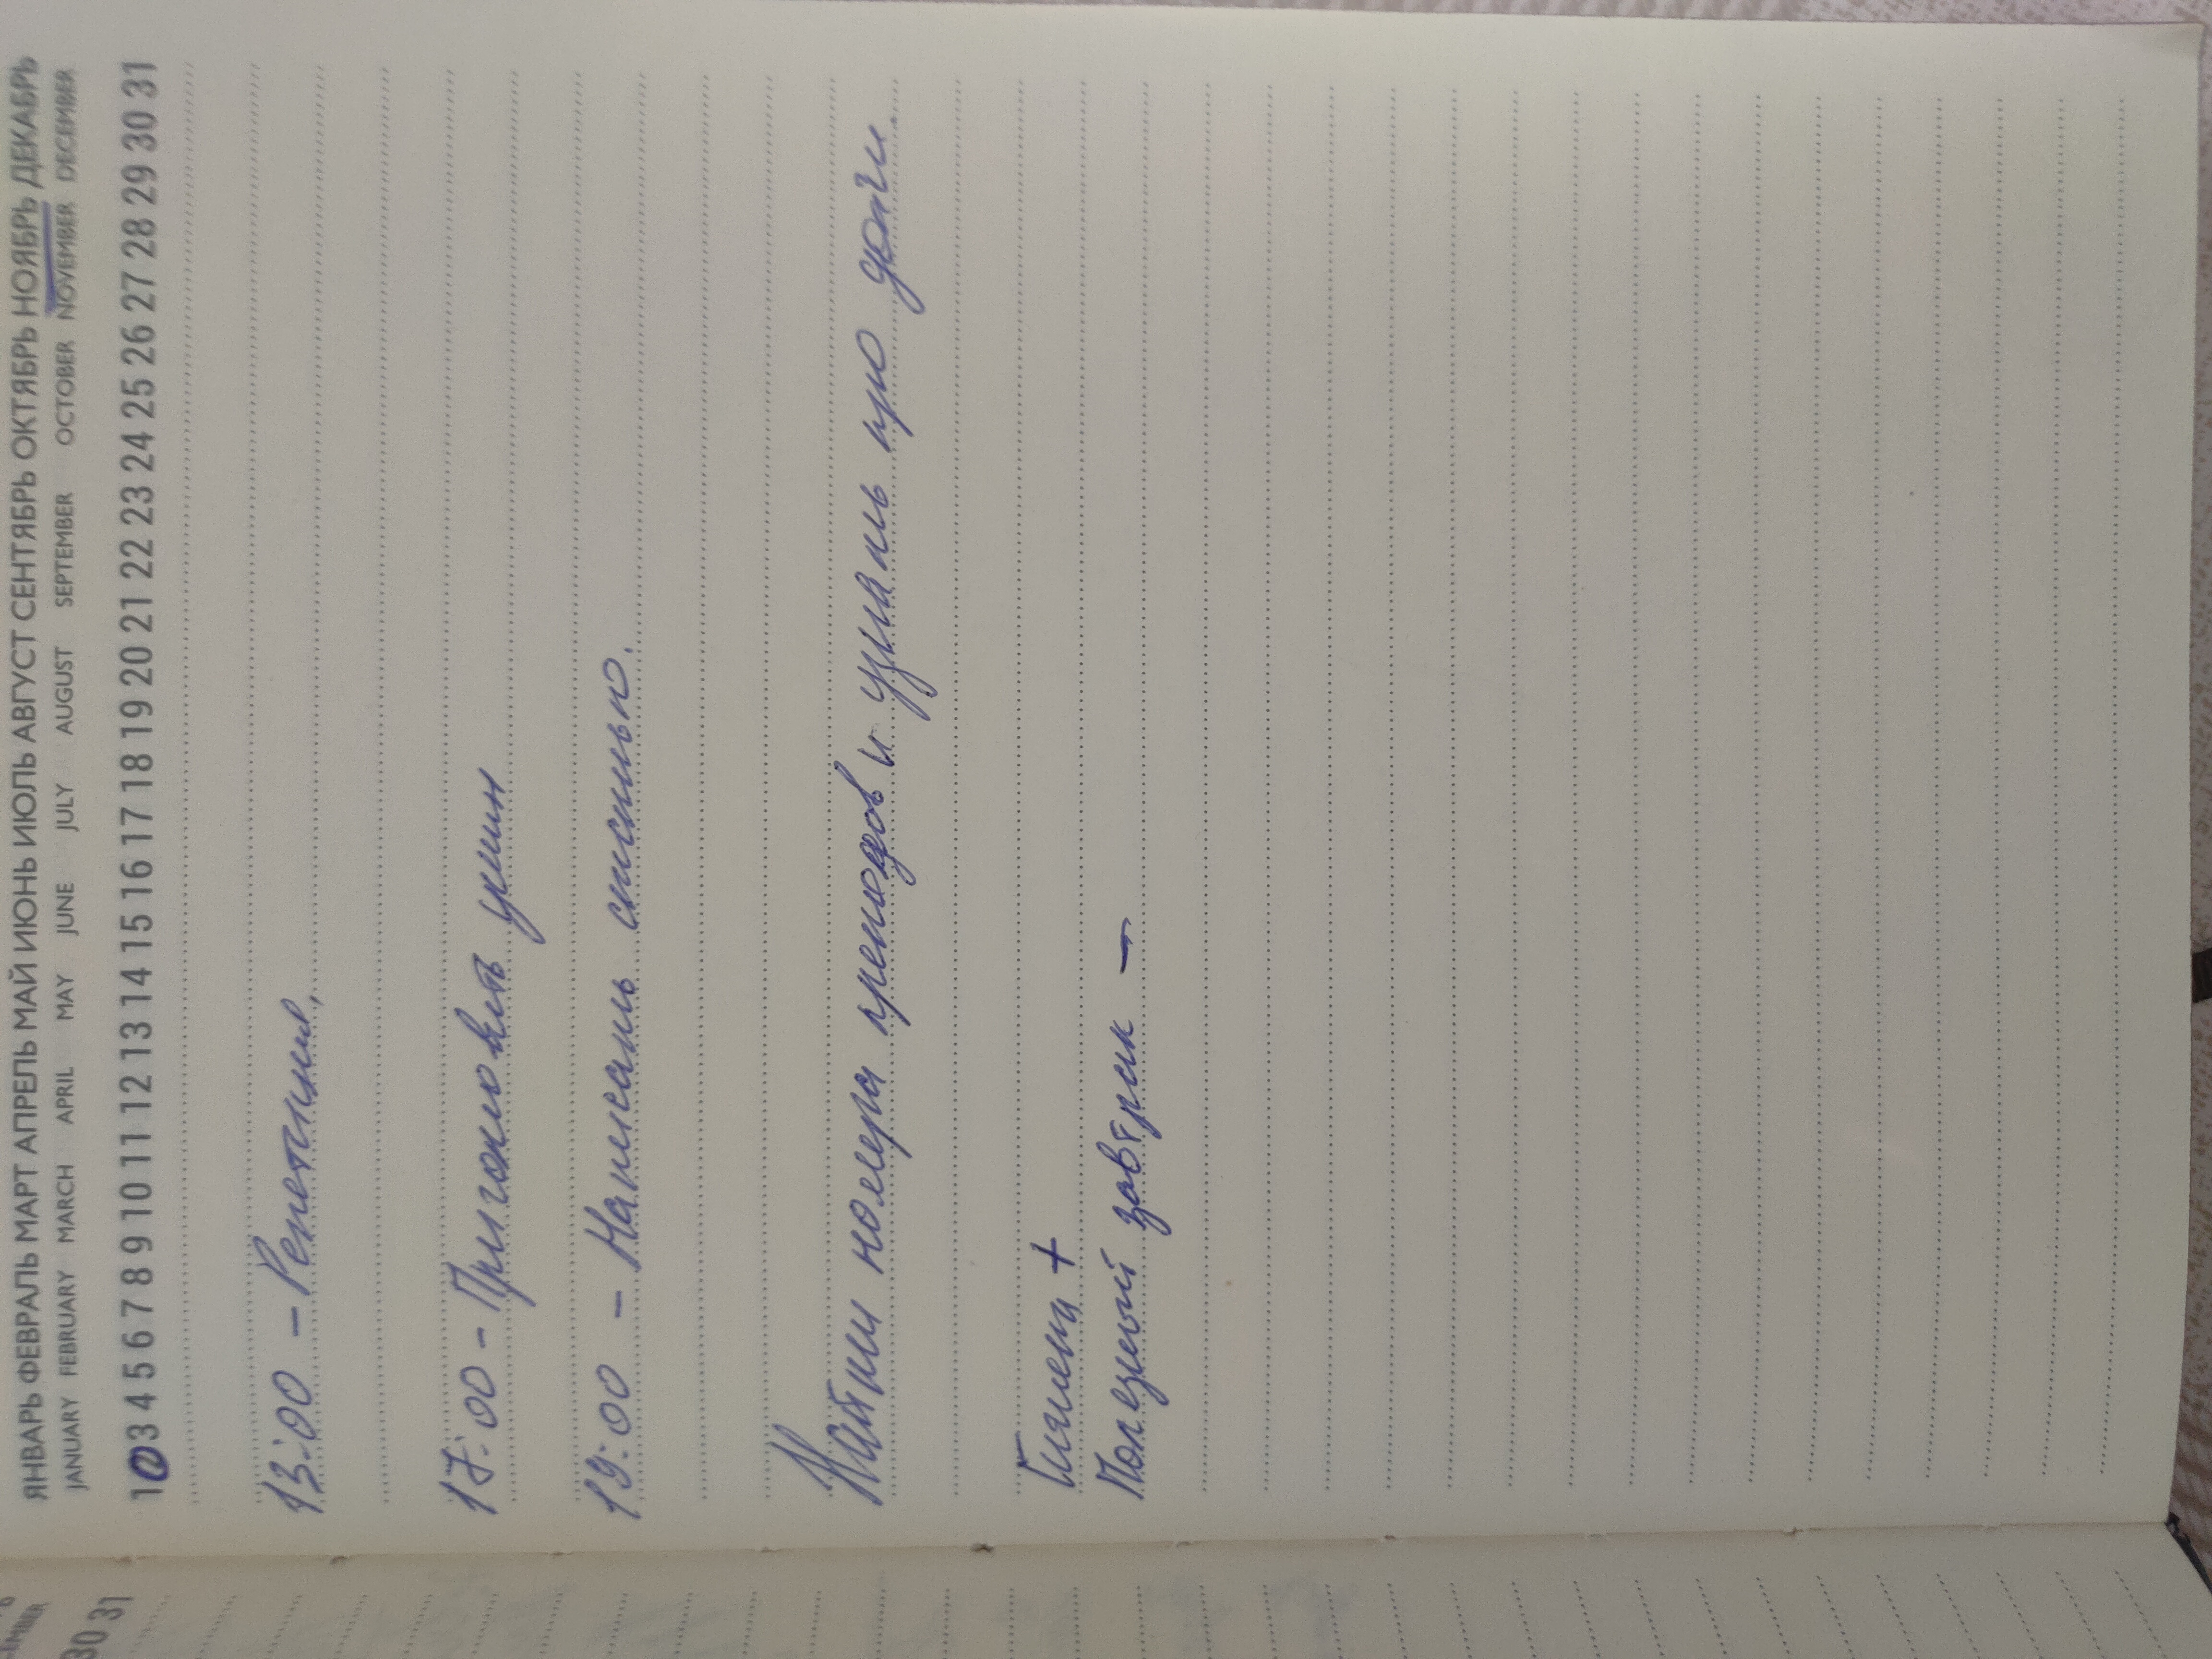 ЯНВАРЬ ФЕВРАЛЬ МАРТ АПРЕЛЬ МАЙ ИЮНЬ ИЮЛЬ АВГУСТ СЕНТЯБРЬ ОКТЯБРЬ НОЯБРЬ ДЕКАБРЬ
JANUARY FEBRUARY MARCH APRIL MAY JUNE JULY AUGUST SEPTEMBER OCTOBER NOVEMBER DECEMBER
1 2 3 4 5 6 7 8 9 10 11 12 13 14 15 16 17 18 19 20 21 22 23 24 25 26 27 28 29 30 31
13:00 -
17:00 - Приготовить ужин
19:00 - Написать
Найти номера преподов и узнать про долги.
Гигиена +
Полезный завтрак -
30 31